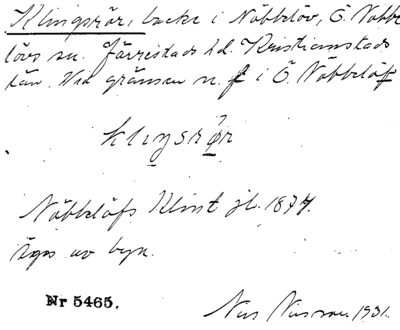 Klingsrör, backe i Nöbbelöv, Ö. Nöbbe
lövs sn. Järrestads hd. Kristianstads
län. Vid gränsen n. f i Ö. Nöbbelöf
klinsrør
Nöbbelöfs Klint jb. 1877.
äges av byn.
Nr 5465.
Nils Nilsson 1931.